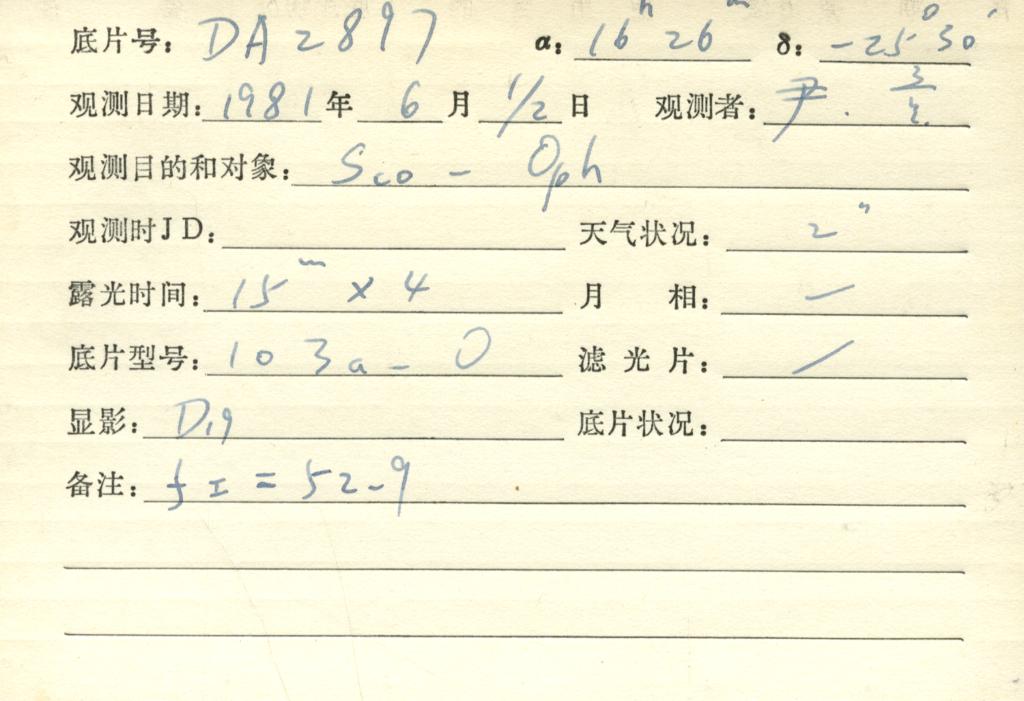 底片号: DA2897 α: 16h 26m δ: -25°30′
观测日期: 1981年 6月 1/2日 观测者: 尹.
观测目的和对象: Sco - Oph
观测时JD: 天气状况: 2"
露光时间: 15m × 4 月 相: —
底片型号: 103a-O 滤光片: /
显影: D19 底片状况:
备注: fI = 52.9